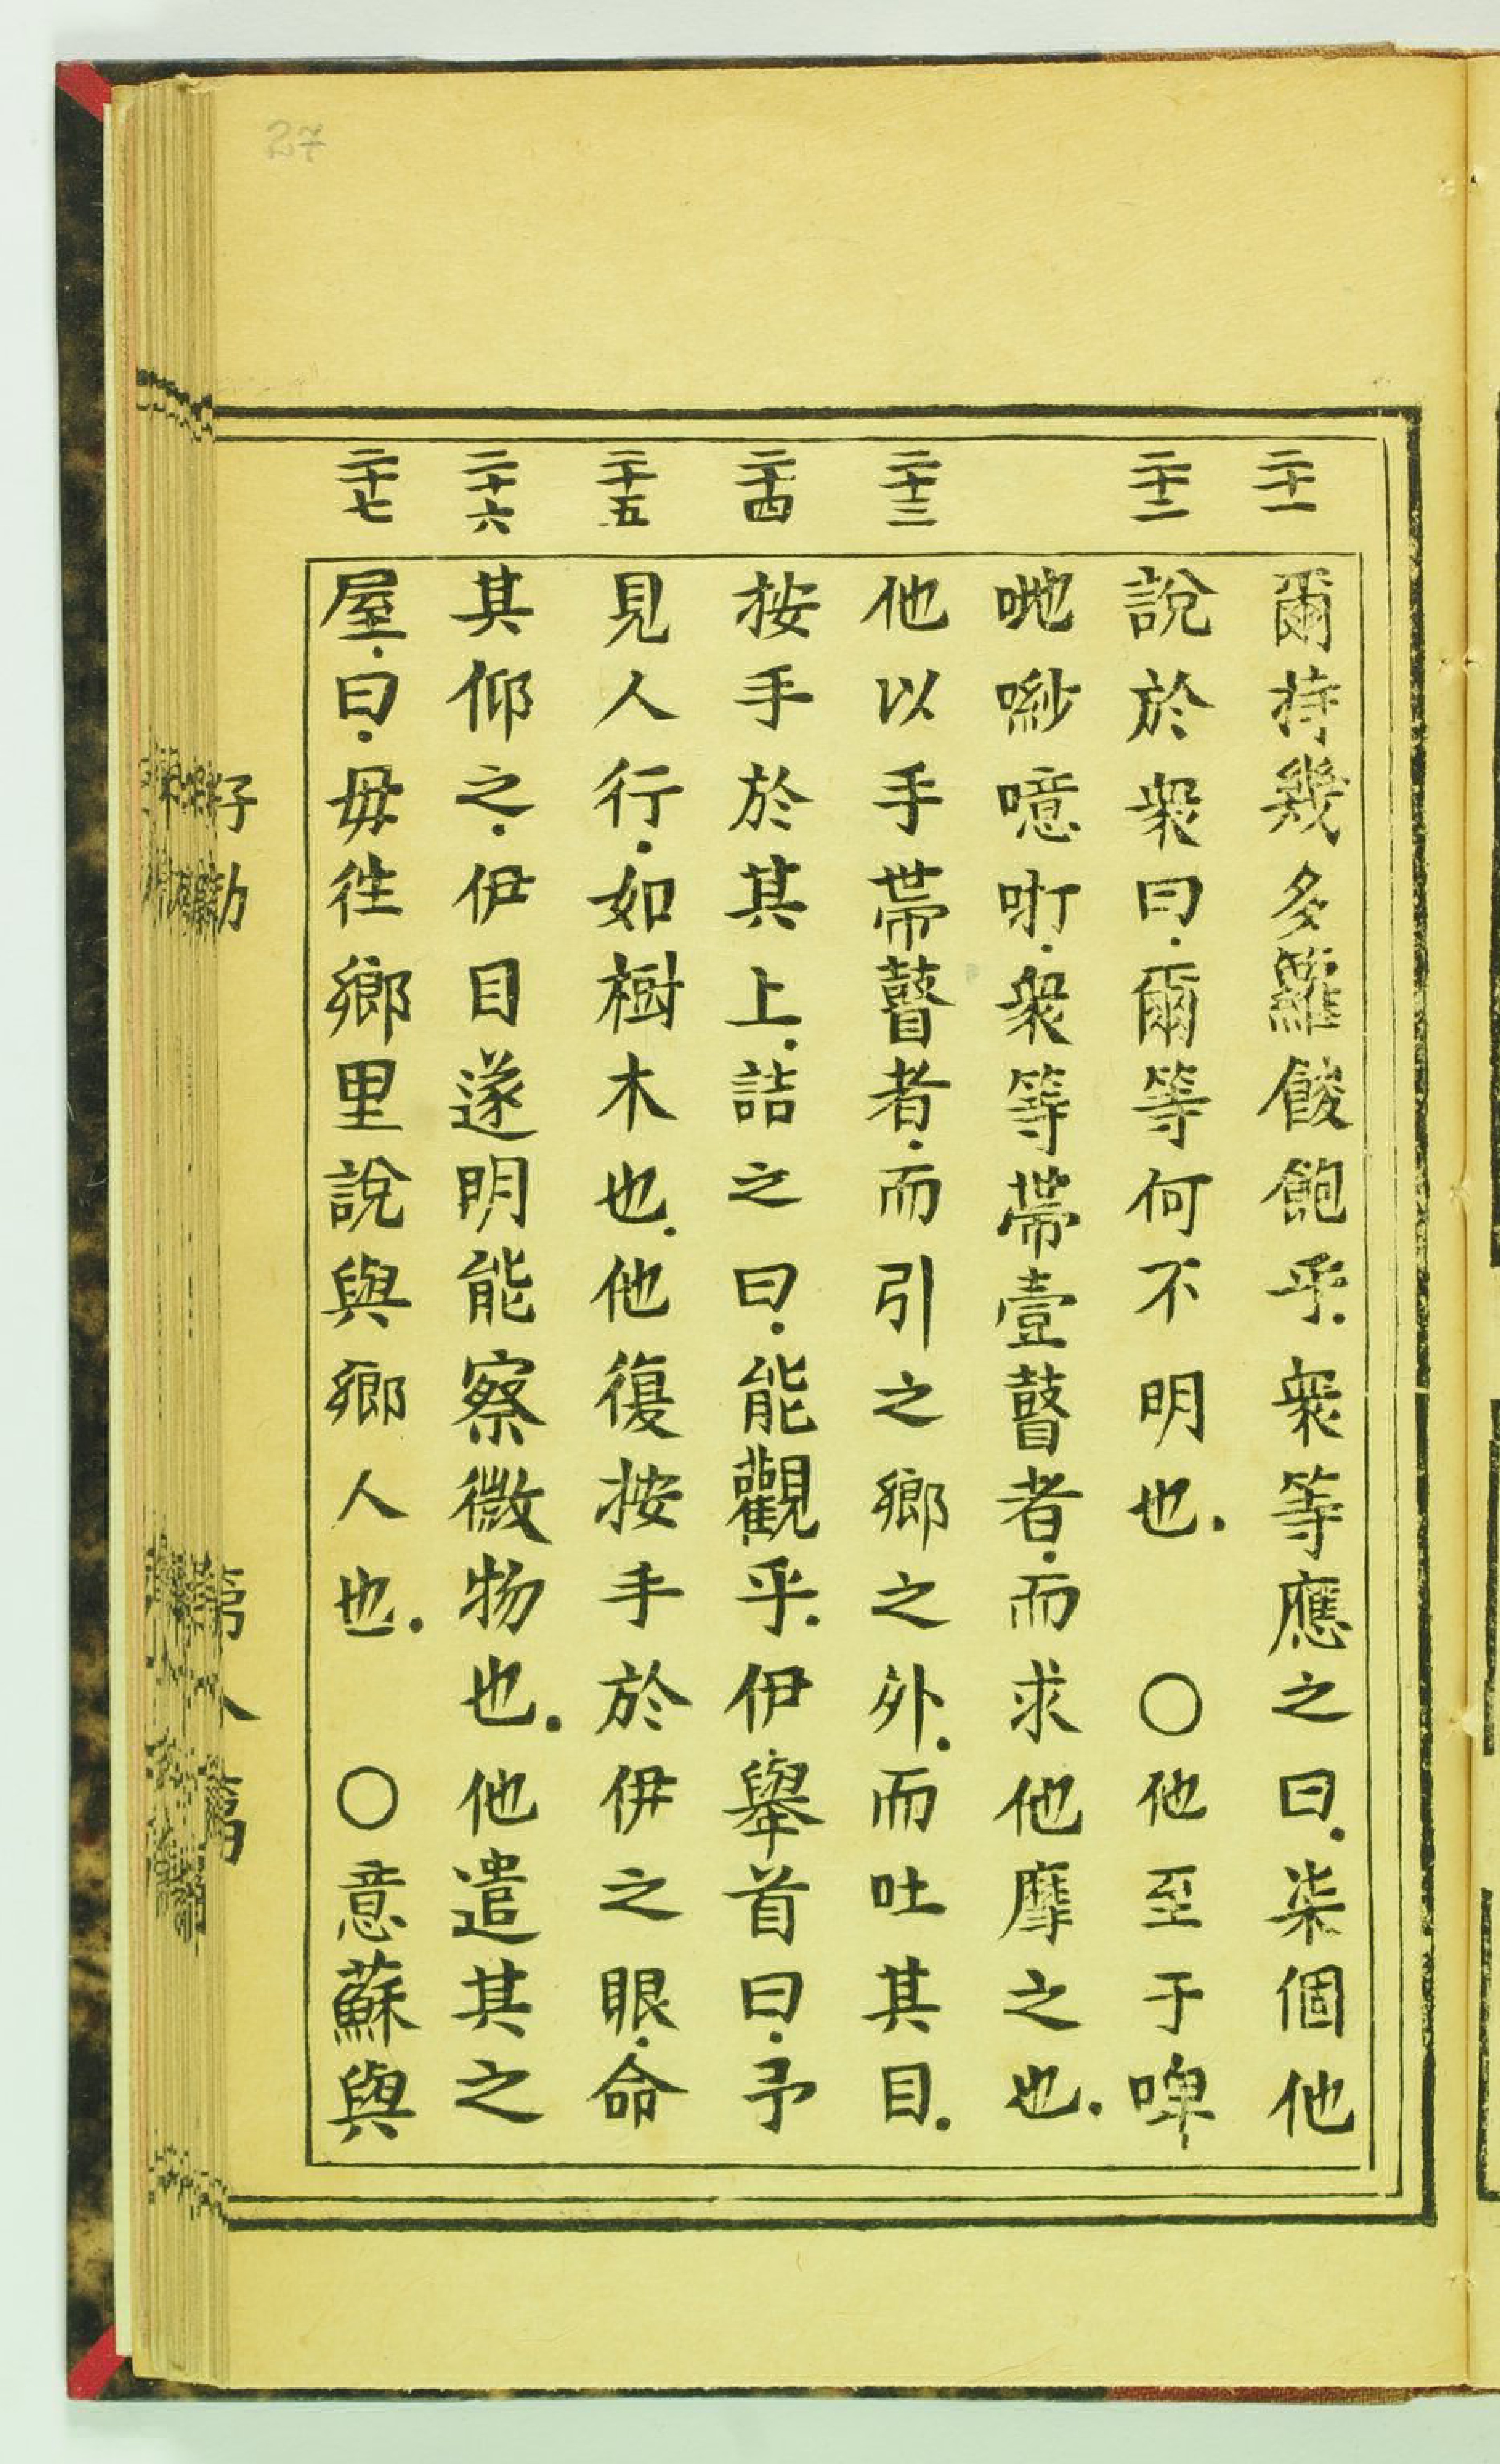 27
二十一 二十二 二十三 二十四 二十五 二十六 二十七
爾持幾多籮餕飽乎.衆等應之曰.柒個他
說於衆曰.爾等何不明也. 〇他至于啤
哋𠼻噫咑.衆等帶壹瞽者.而求他摩之也.
他以手帶瞽者.而引之鄉之外.而吐其目.
按手於其上.詰之曰.能觀乎.伊舉首曰.予
見人行.如樹木也.他復按手於伊之眼.命
其仰之.伊目遂明能察微物也.他遣其之
屋.曰.毋徃鄉里說與鄉人也. 〇意蘇與